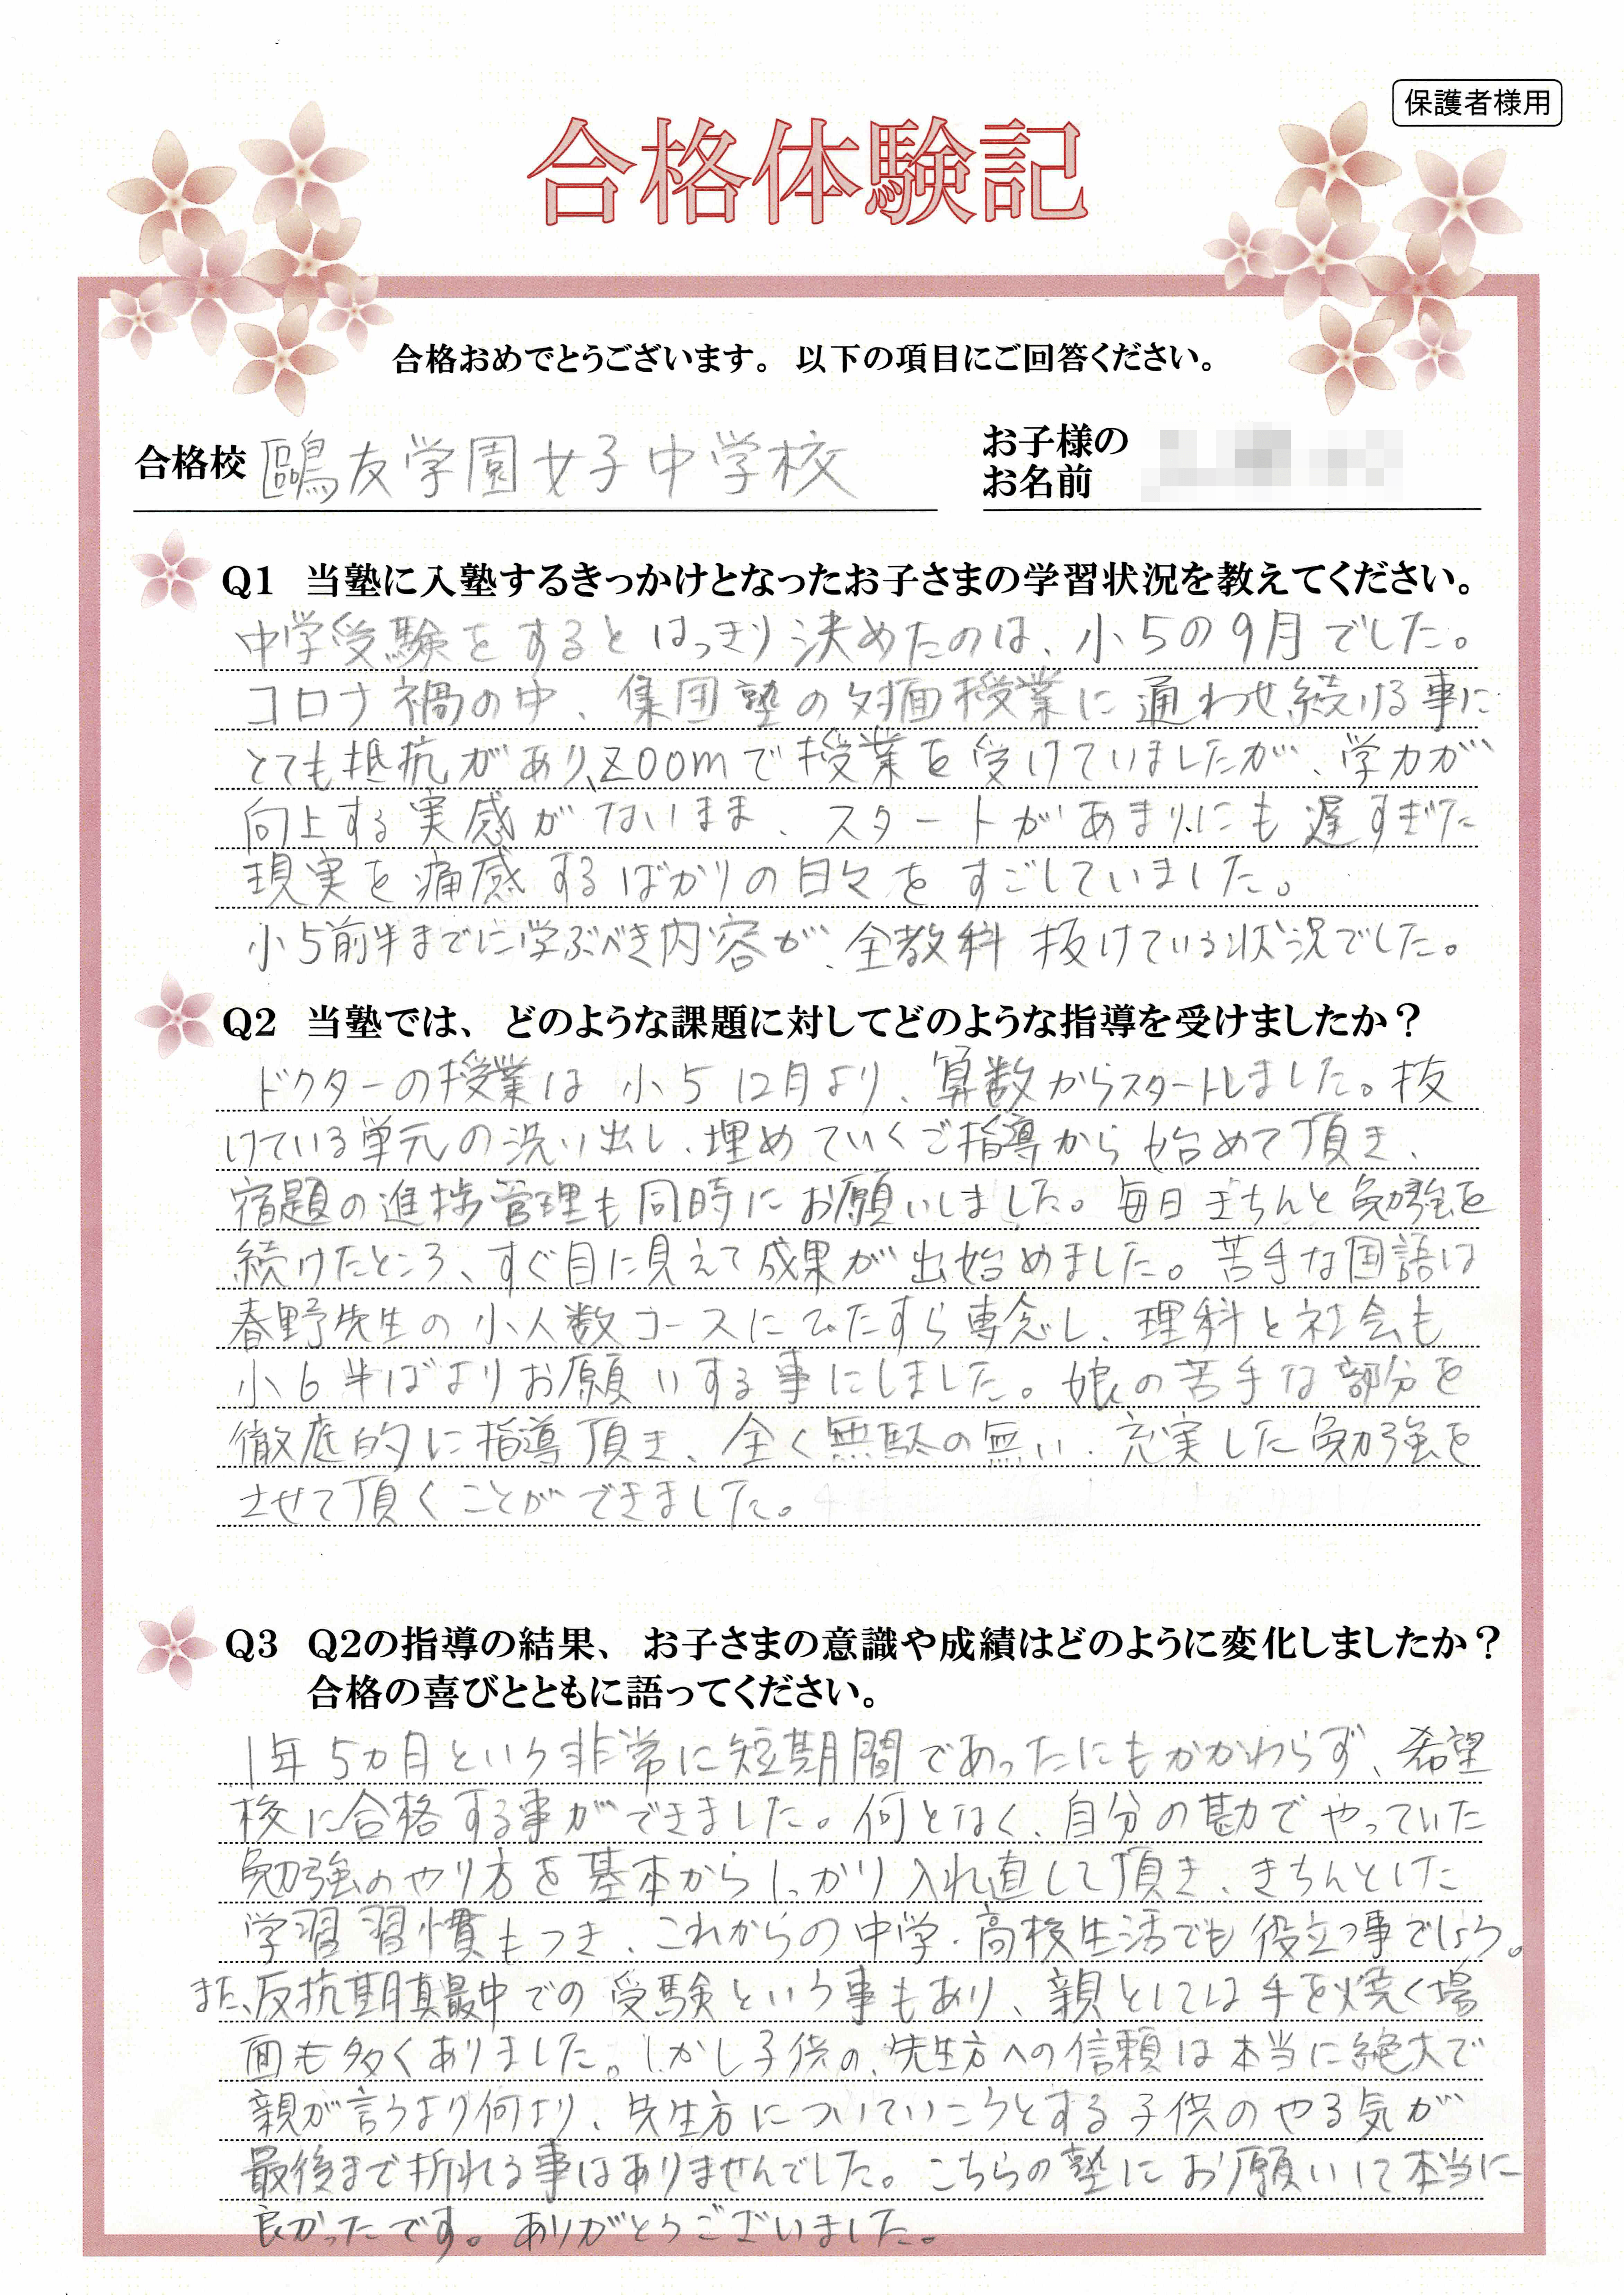 保護者様用
合格体験記
合格おめでとうございます。 以下の項目にご回答ください。
合格校 鷗友学園女子中学校
お子様の
お名前
Q1 当塾に入塾するきっかけとなったお子さまの学習状況を教えてください。
中学受験をするとはっきり決めたのは、小5の9月でした。
コロナ禍の中、集団塾の対面授業に通わせ続ける事に
とても抵抗があり、Zoomで授業を受けていましたが、学力が
向上する実感がないまま、スタートがあまりにも遅すぎた
現実を痛感するばかりの日々をすごしていました。
小5前半までに学ぶべき内容が、全教科 抜けている状況でした。
Q2 当塾では、どのような課題に対してどのような指導を受けましたか？
ドクターの授業は 小5 12月より、算数からスタートしました。抜
けている単元の洗い出し、埋めていくご指導から始めて頂き、
宿題の進捗管理も同時にお願いしました。毎日きちんと勉強を
続けたところ、すぐ目に見えて成果が出始めました。苦手な国語は
春野先生の小人数コースにひたすら専念し、理科と社会も
小6半ばよりお願いする事にしました。娘の苦手な部分を
徹底的に指導頂き、全く無駄の無い、充実した勉強を
させて頂くことができました。
Q3 Q2の指導の結果、お子さまの意識や成績はどのように変化しましたか？
合格の喜びとともに語ってください。
1年5ヵ月という非常に短期間であったにもかかわらず、希望
校に合格する事ができました。何となく、自分の勘でやっていた
勉強のやり方を基本からしっかり入れ直して頂き、きちんとした
学習習慣もつき、これからの中学・高校生活でも役立つ事でしょう。
また、反抗期真最中での受験という事もあり、親としては手を焼く場
面も多くありました。しかし子供の、先生方への信頼は本当に絶大で
親が言うより何より、先生方についていこうとする子供のやる気が
最後まで折れる事はありませんでした。こちらの塾にお願いして本当に
良かったです。ありがとうございました。